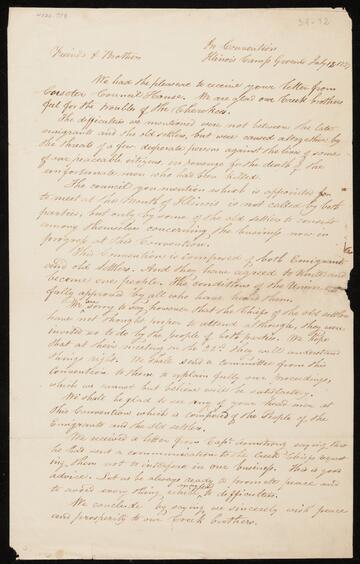 4026.779
39-72
In Convention
Friends & Brothers
Illinois Camp Ground July 12, 1839
We had the pleasure to receive your letter from
Council House. We are glad our Creek brothers
feel for the troubles of the Cherokees.
The difficulties we mentioned were not between the late
emigrants and the old settlers, but were caused altogether by
the threats of a few desperate persons against the lives of some
of our peaceable citizens, in revenge for the death of the
unfortunate men who had been killed.
The council you mention which is appointed for
to meet at the Mouth of Illinois is not called by both
parties, but only by some of the old settlers to consult
among themselves concerning the business now in
progress at this Convention.
This Convention is composed of both Emigrants
and old settlers. And they have agreed to Unite and
become one people. The conditions of the Union
fully approved by all who have heard them.
We are sorry to say, however that the Chiefs of the old settlers
have not thought proper to attend although, they were
invited so to do by the people of both parties. We hope
that at their meeting on the 22nd they will understand
things right. We shall send a Committee from this
Convention to them to explain fully our proceedings,
which we cannot but believe will be satisfactory.
We shall be glad to see any of your head men at
this Convention which is composed of the People of the
Emigrants and the old settlers.
We received a letter from Capt. Armstrong saying that
he had sent a communication to the Creek Chiefs request
ing them not to interfere in our business. This is good
advice. Let us be always ready to promote peace and
to avoid every thing which might to difficulties.
We conclude by saying we sincerely wish peace
and prosperity to our Creek brothers.